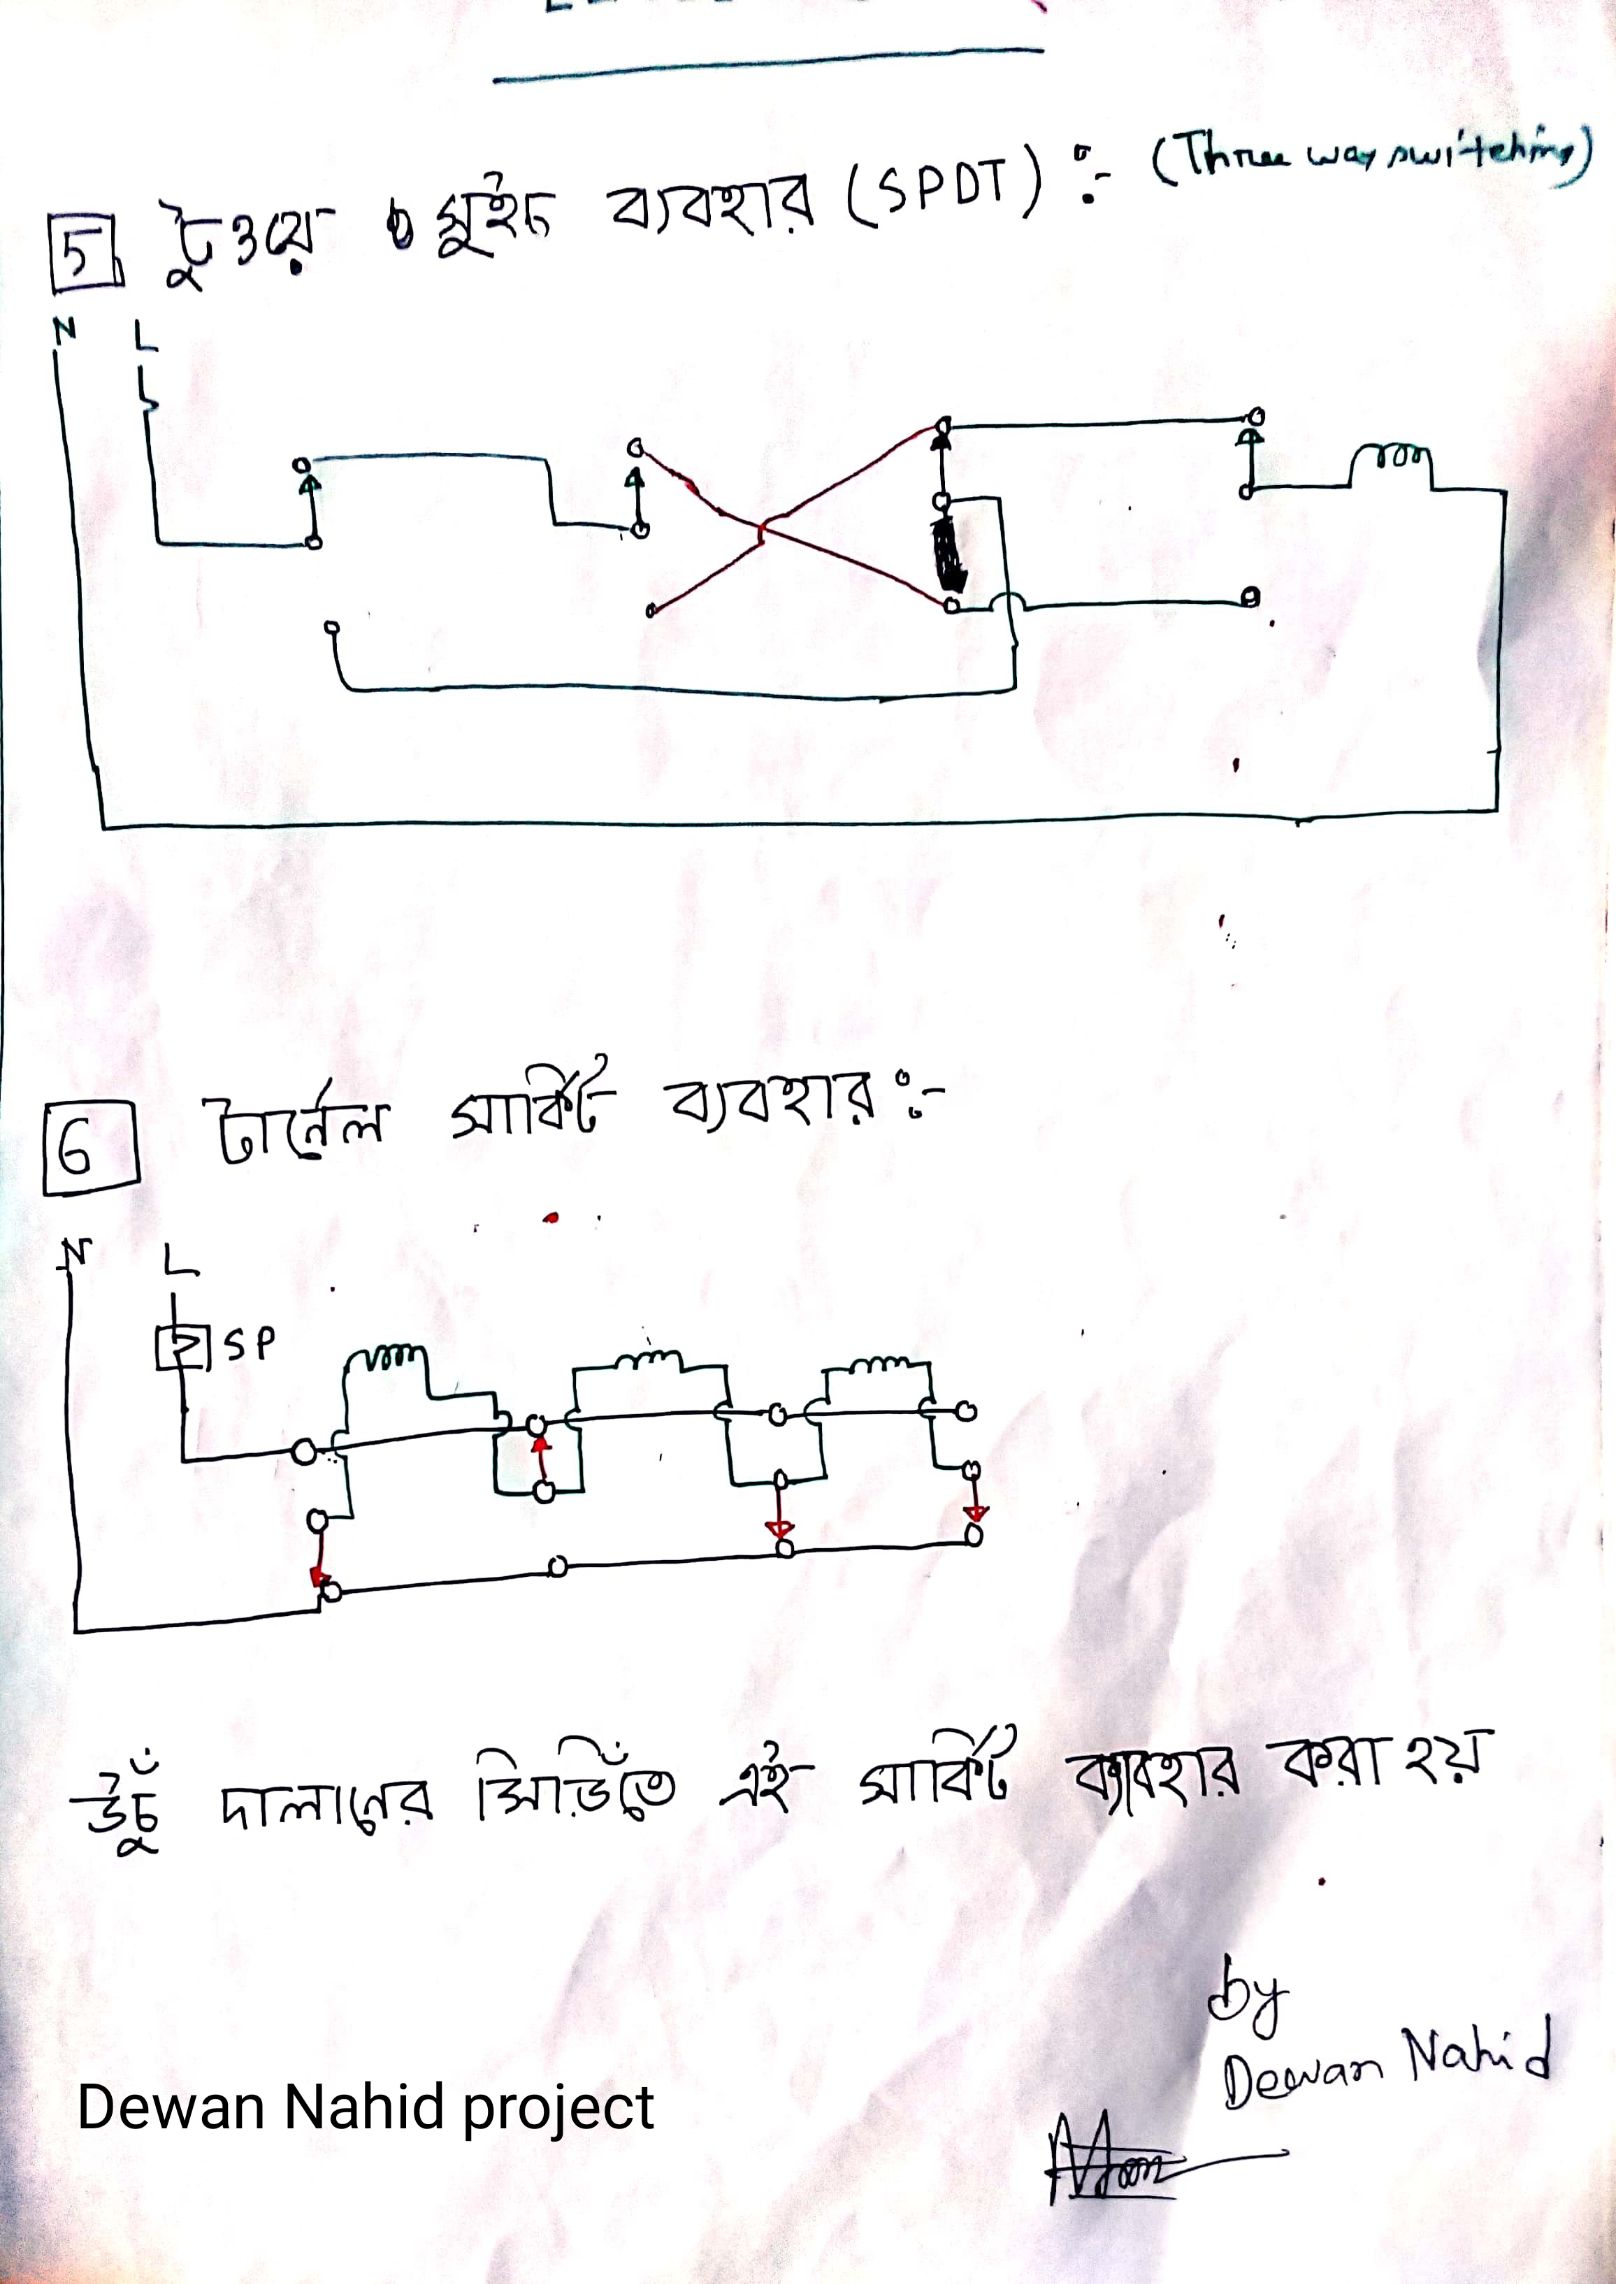 5 টুওয়ে সুইচ ব্যবহার (SPDT) :- (Three way switching)
N L
6 টার্নেল সার্কিট ব্যবহার :-
N L
SP
উঁচুঁ দালানের সিড়িঁতে এই সার্কিট ব্যবহার করা হয়
by
Dewan Nahid
Dewan Nahid project